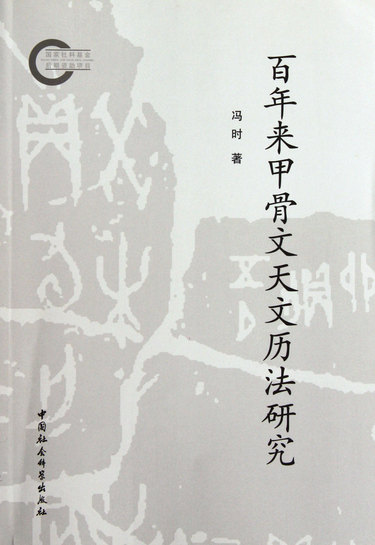 国家社科基金
后期资助项目
百年来甲骨文天文历法研究
冯时 著
中国社会科学出版社